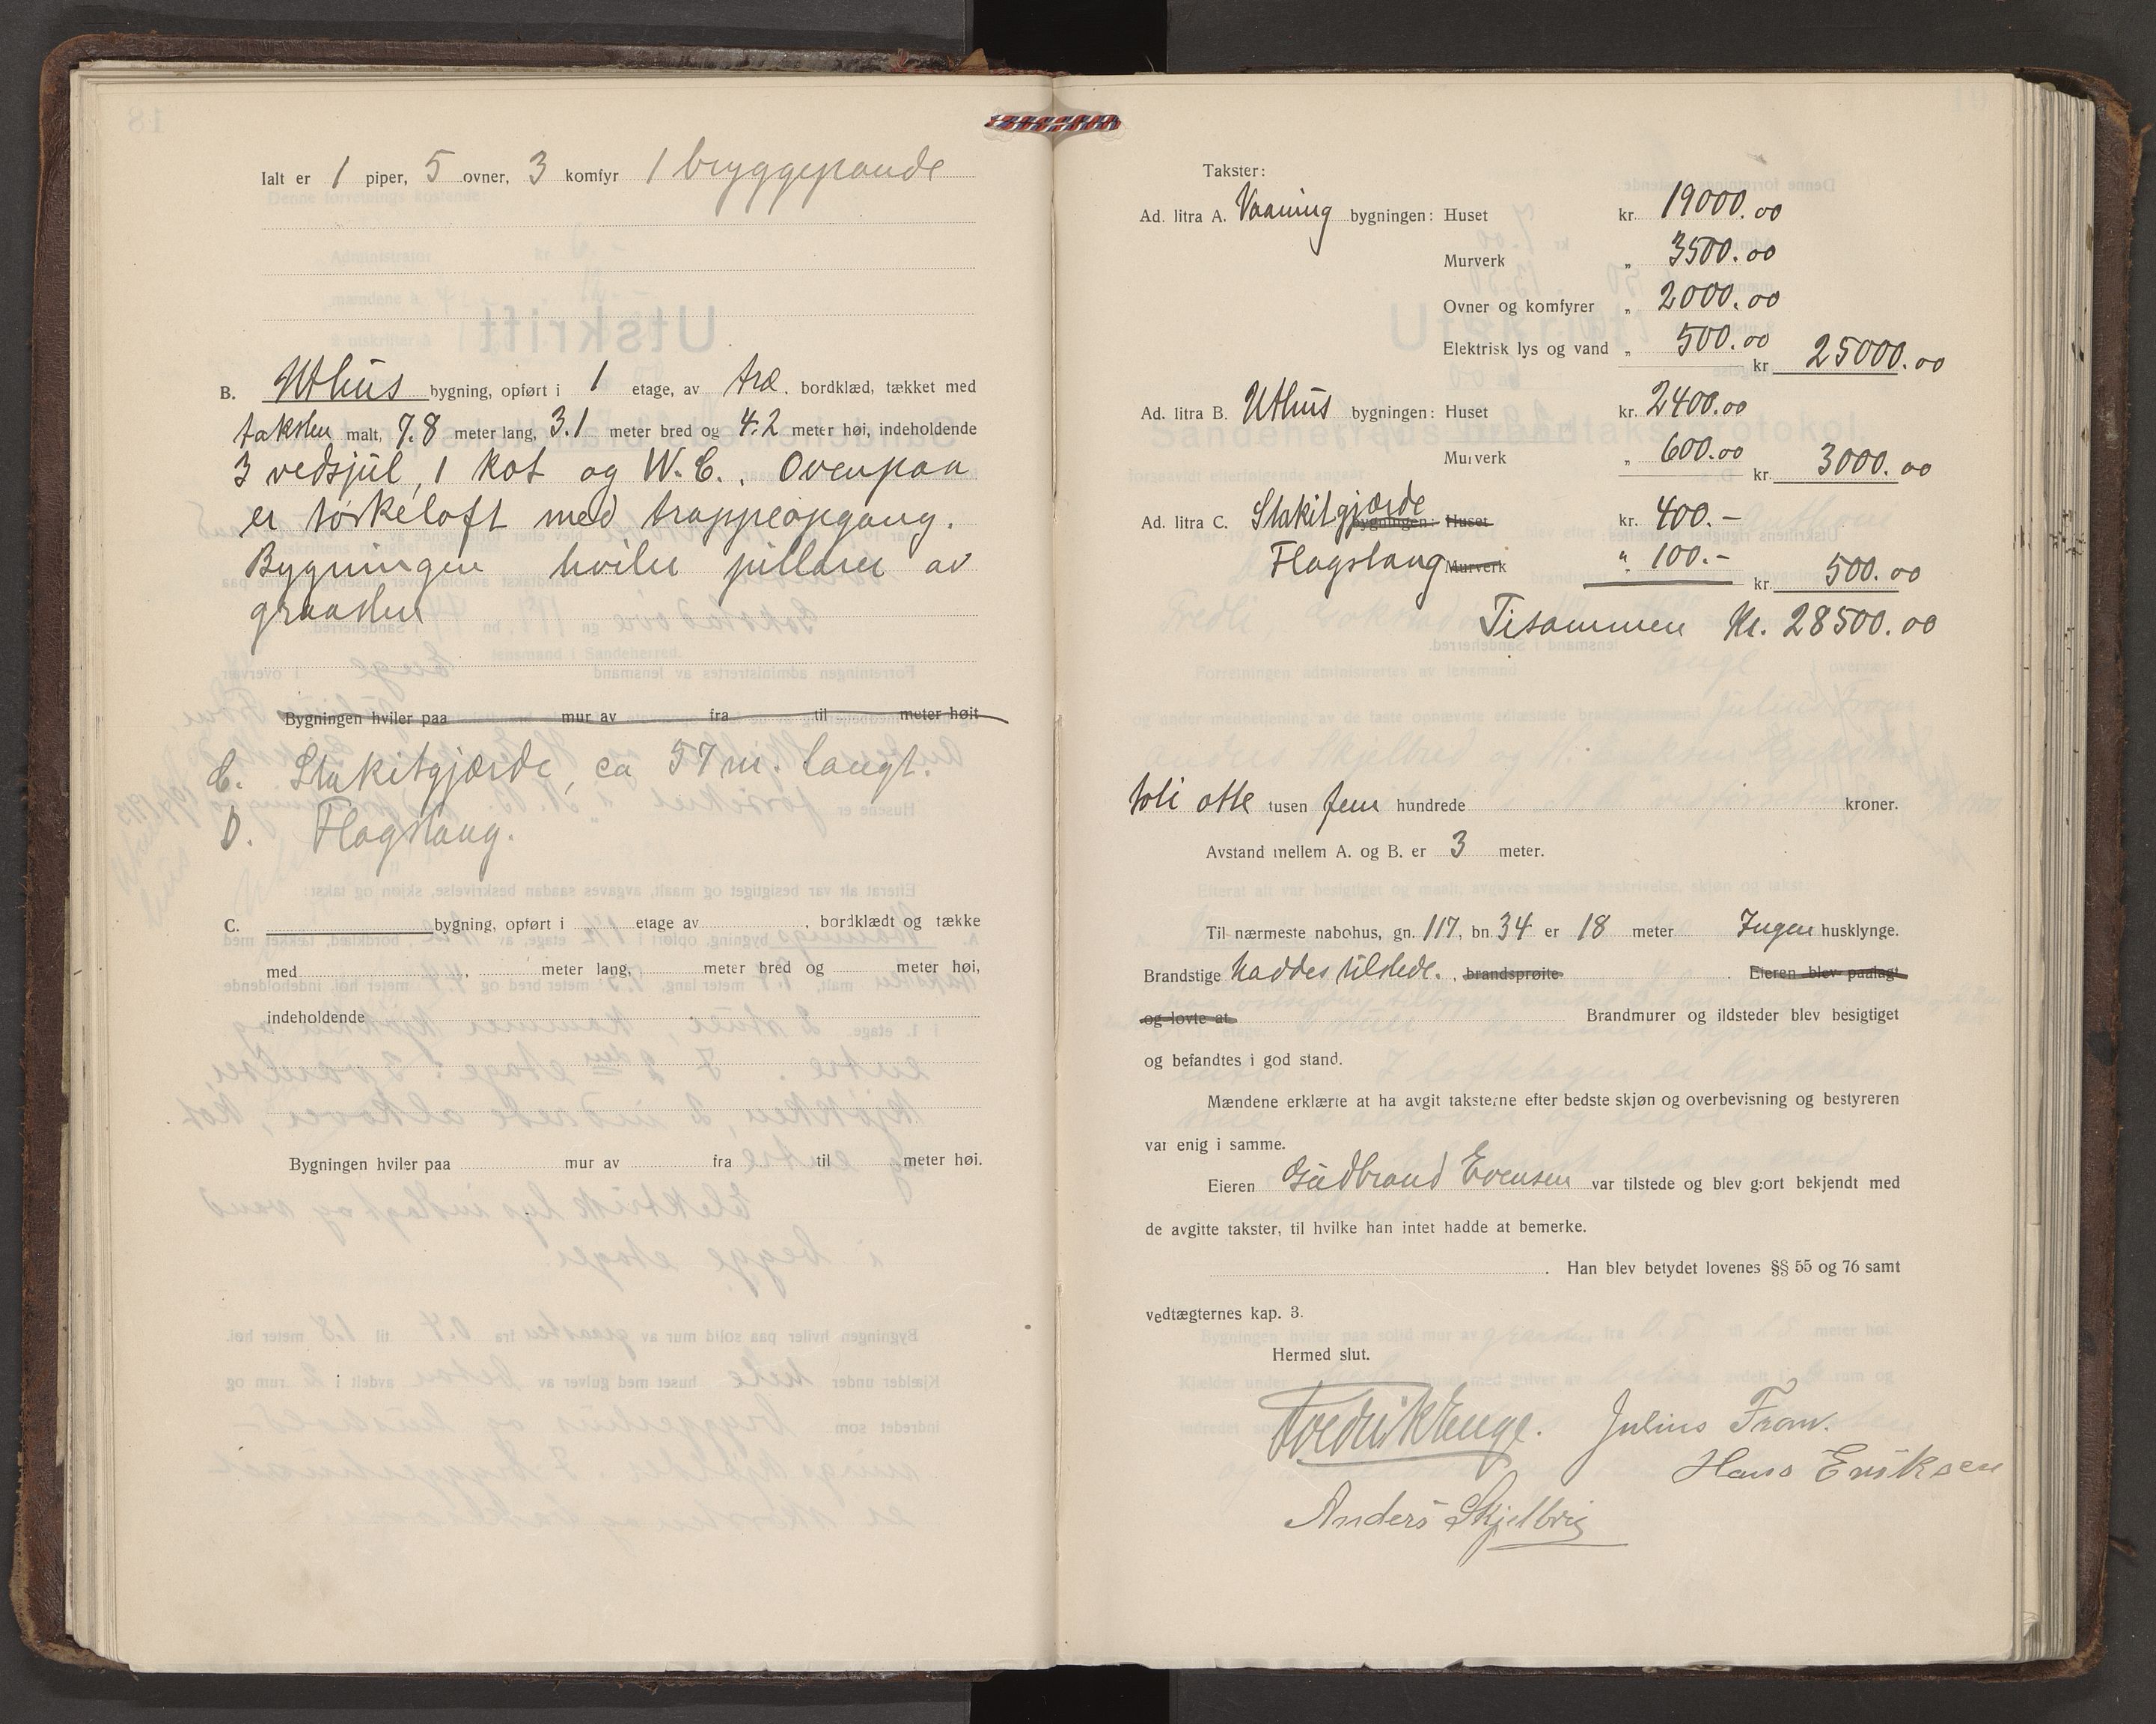 Ialt er 1 piper, 5 ovner, 3 komfyr 1 bryggepande
B. Uthus bygning, opført i 1 etage, av træ. bordklæd, tækket med
taksten malt, 7.8 meter lang, 3.1 meter bred og 4.2 meter høi, indeholdende
3 vedsjul, 1 kot og W.C.. Ovenpaa
er törkeloft med trappeopgang.
Bygningen hviler pillarer av
graasten
Bygningen hviler paa mur av fra til meter høit
C. Stakitgjærde, ca 57 m. langt.
D. Flagstang.
C. bygning, opført i etage av , bordklædt og tække
med , meter lang, meter bred og meter høi,
indeholdende
Bygningen hviler paa mur av fra til meter høi.
Takster:
Ad. litra A. Vaaning bygningen: Huset kr. 19000.00
Murverk „ 3500.00
Ovner og komfyrer „ 2000.00
Elektrisk lys og vand „ 500.00
kr 25000.00
Ad. litra B. Uthus bygningen: Huset kr. 2400.00
Murverk „ 600.00
kr. 3000.00
Ad. litra C. Stakitgjærde bygningen: Huset kr. 400.-
Flagstang Murverk " 100.-
kr. 500.00
Tisammen Kr. 28500.00
toti otte tusen fem hundrede kroner.
Avstand mellem A. og B. er 3 meter.
Til nærmeste nabohus, gn. 117, bn. 34 er 18 meter Ingen husklynge.
Brandstige haddes tilstede. , brandsprøite . Eieren blev paalagt
og lovte at Brandmurer og ildsteder blev besigtiget
og befandtes i god stand.
Mændene erklærte at ha avgit taksterne efter bedste skjøn og overbevisning og bestyreren
var enig i samme.
Eieren Gudbrand Evensen var tilstede og blev gjort bekjendt med
de avgitte takster, til hvilke han intet hadde at bemerke.
. Han blev betydet lovenes §§ 55 og 76 samt
vedtægternes kap. 3.
Hermed slut.
Fredrik Enge. Julius Fram.
Hans Eriksen
Anders Skjelbrig